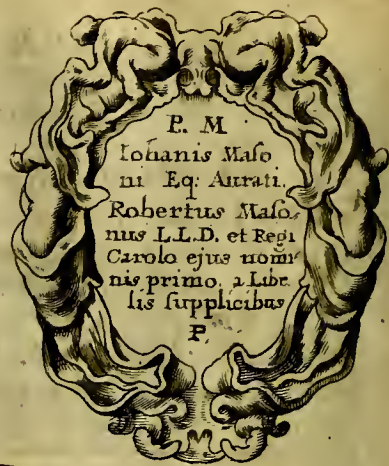 P. M
Iohanis Maso
ni Eq: Aurati.
Robertus Maso-
nus L.L.D. et Regi
Carolo ejus nomi-
nis primo, a Libe
lis supplicibus
P.